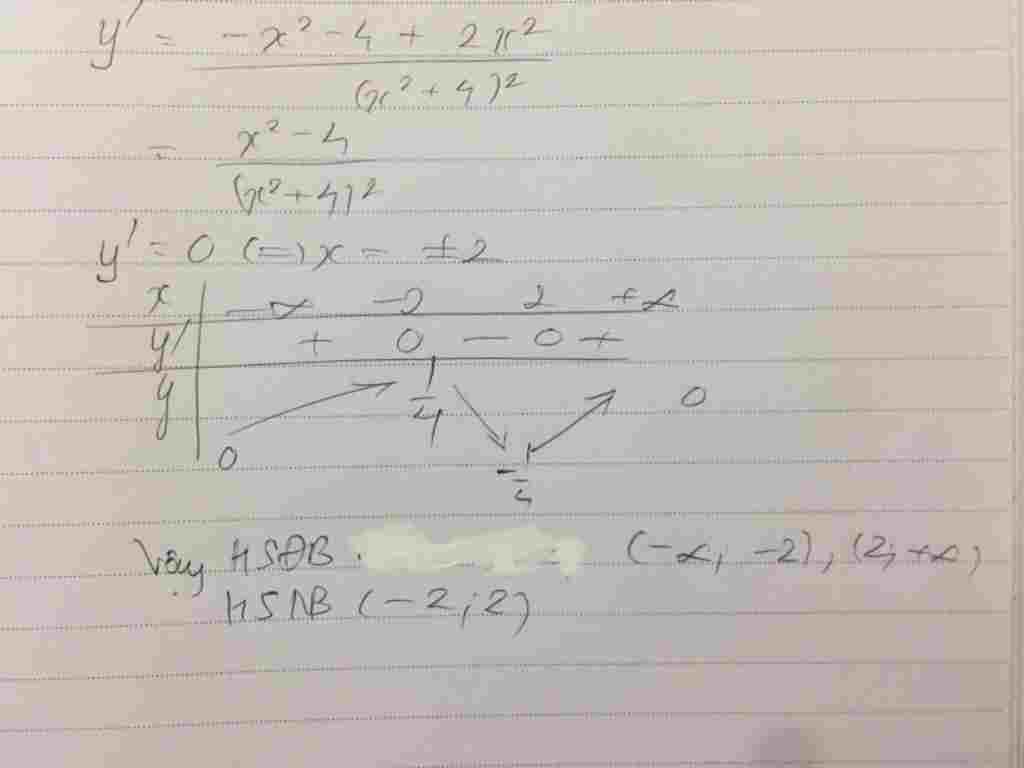 y' = (-x² - 4 + 2x²) / (x² + 4)²
= (x² - 4) / (x² + 4)²
y' = 0 (=) x = ±2
x | -∞ -2 2 +∞
y' | + 0 - 0 +
y | 0 ↗ 1/4 ↘ -1/4 ↗ 0
Vậy HSĐB (-∞; -2), (2; +∞)
HSNB (-2; 2)